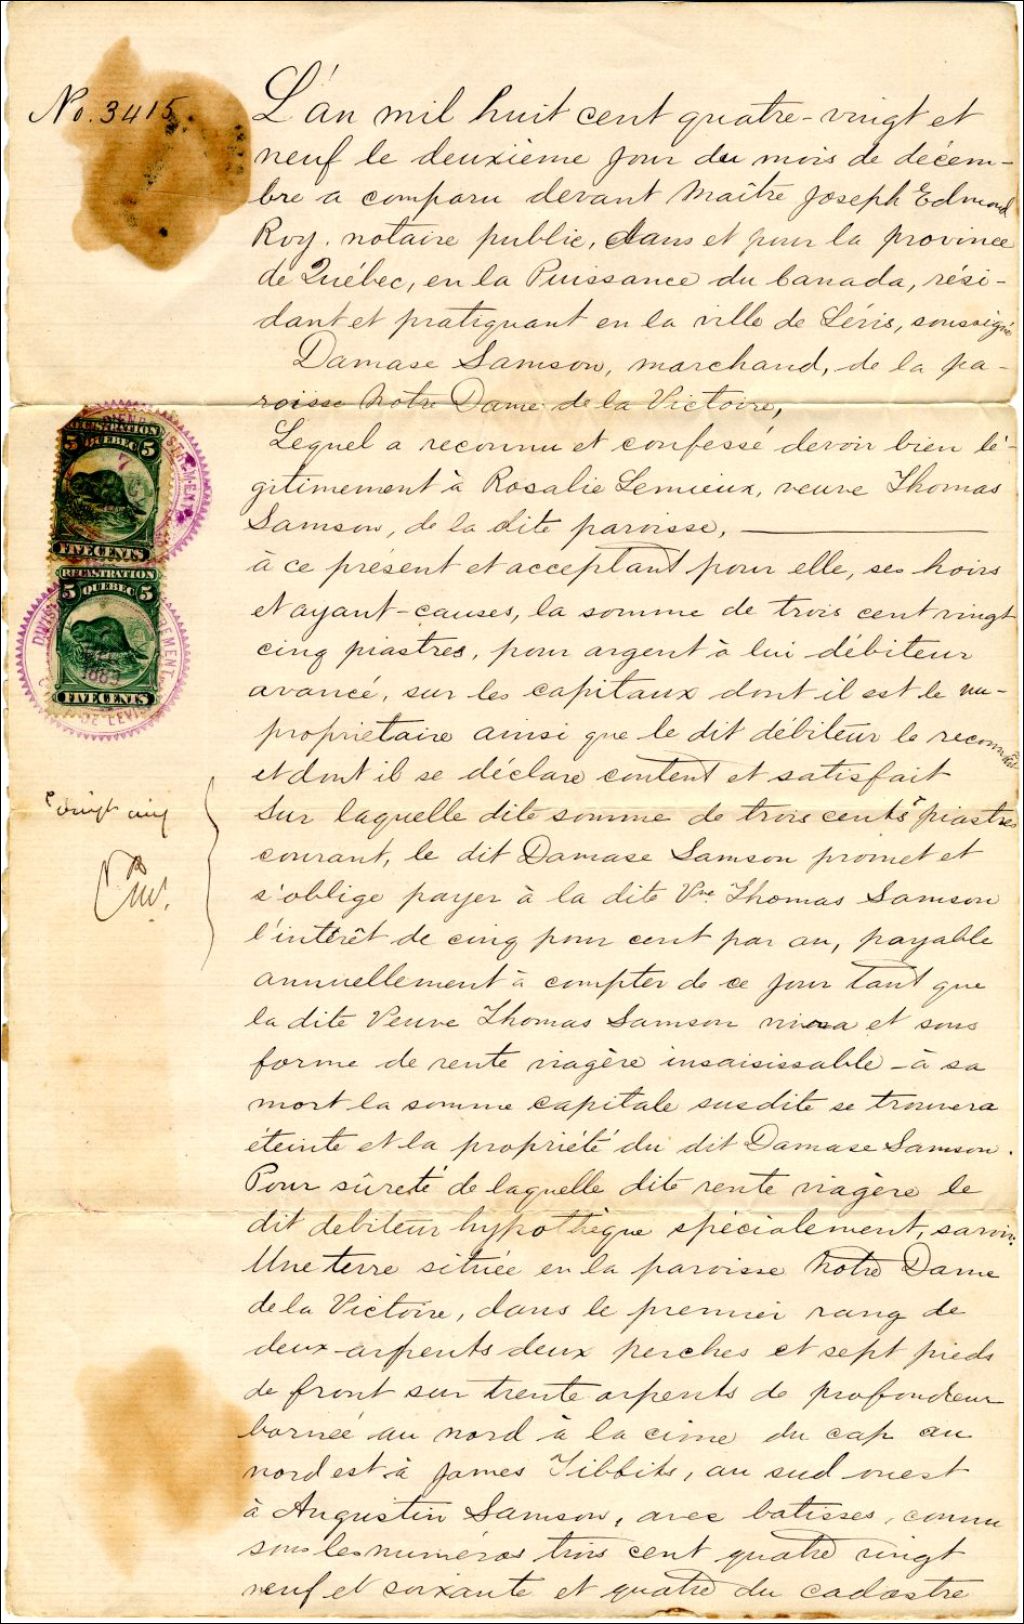 No. 3415
L'an mil huit cent quatre-vingt et
neuf le deuxième jour du mois de décem-
bre a comparu devant Maître Joseph Edmond
Roy, notaire public, dans et pour la province
de Québec, en la Puissance du Canada, rési-
dant et pratiquant en la ville de Lévis, soussigné
Damase Samson, marchand, de la pa-
roisse Notre Dame de la Victoire,
Lequel a reconnu et confessé devoir bien lé-
gitimement à Rosalie Lemieux, veuve Thomas
Samson, de la dite paroisse,
à ce présent et acceptant pour elle, ses hoirs
et ayant-causes, la somme de trois cent vingt
cinq piastres, pour argent à lui débiteur
avancé, sur les capitaux dont il est le nu-
propriétaire ainsi que le dit débiteur le reconnait
et dont il se déclare content et satisfait
Sur laquelle dite somme de trois cents piastres
courant, le dit Damase Samson promet et
s'oblige payer à la dite Vve Thomas Samson
l'intérêt de cinq pour cent par an, payable
annuellement à compter de ce jour tant que
la dite Veuve Thomas Samson vivra et sous
forme de rente viagère insaisissable - à sa
mort la somme capitale susdite se trouvera
éteinte et la propriété du dit Damase Samson.
Pour sûreté de laquelle dite rente viagère le
dit debiteur hypothèque spécialement, savoir:
Une terre située en la paroisse Notre Dame
de la Victoire, dans le premier rang de
deux arpents deux perches et sept pieds
de front sur trente arpents de profondeur
bornée au nord à la cime du cap au
nord est à James Tibbits, au sud ouest
à Augustin Samson, avec batisses, connu
sous les numéros trois cent quatre vingt
neuf et soixante et quatre du cadastre
REGISTRATION
5 QUEBEC 5
FIVE CENTS
REGISTRATION
5 QUEBEC 5
FIVE CENTS
vingt cinq